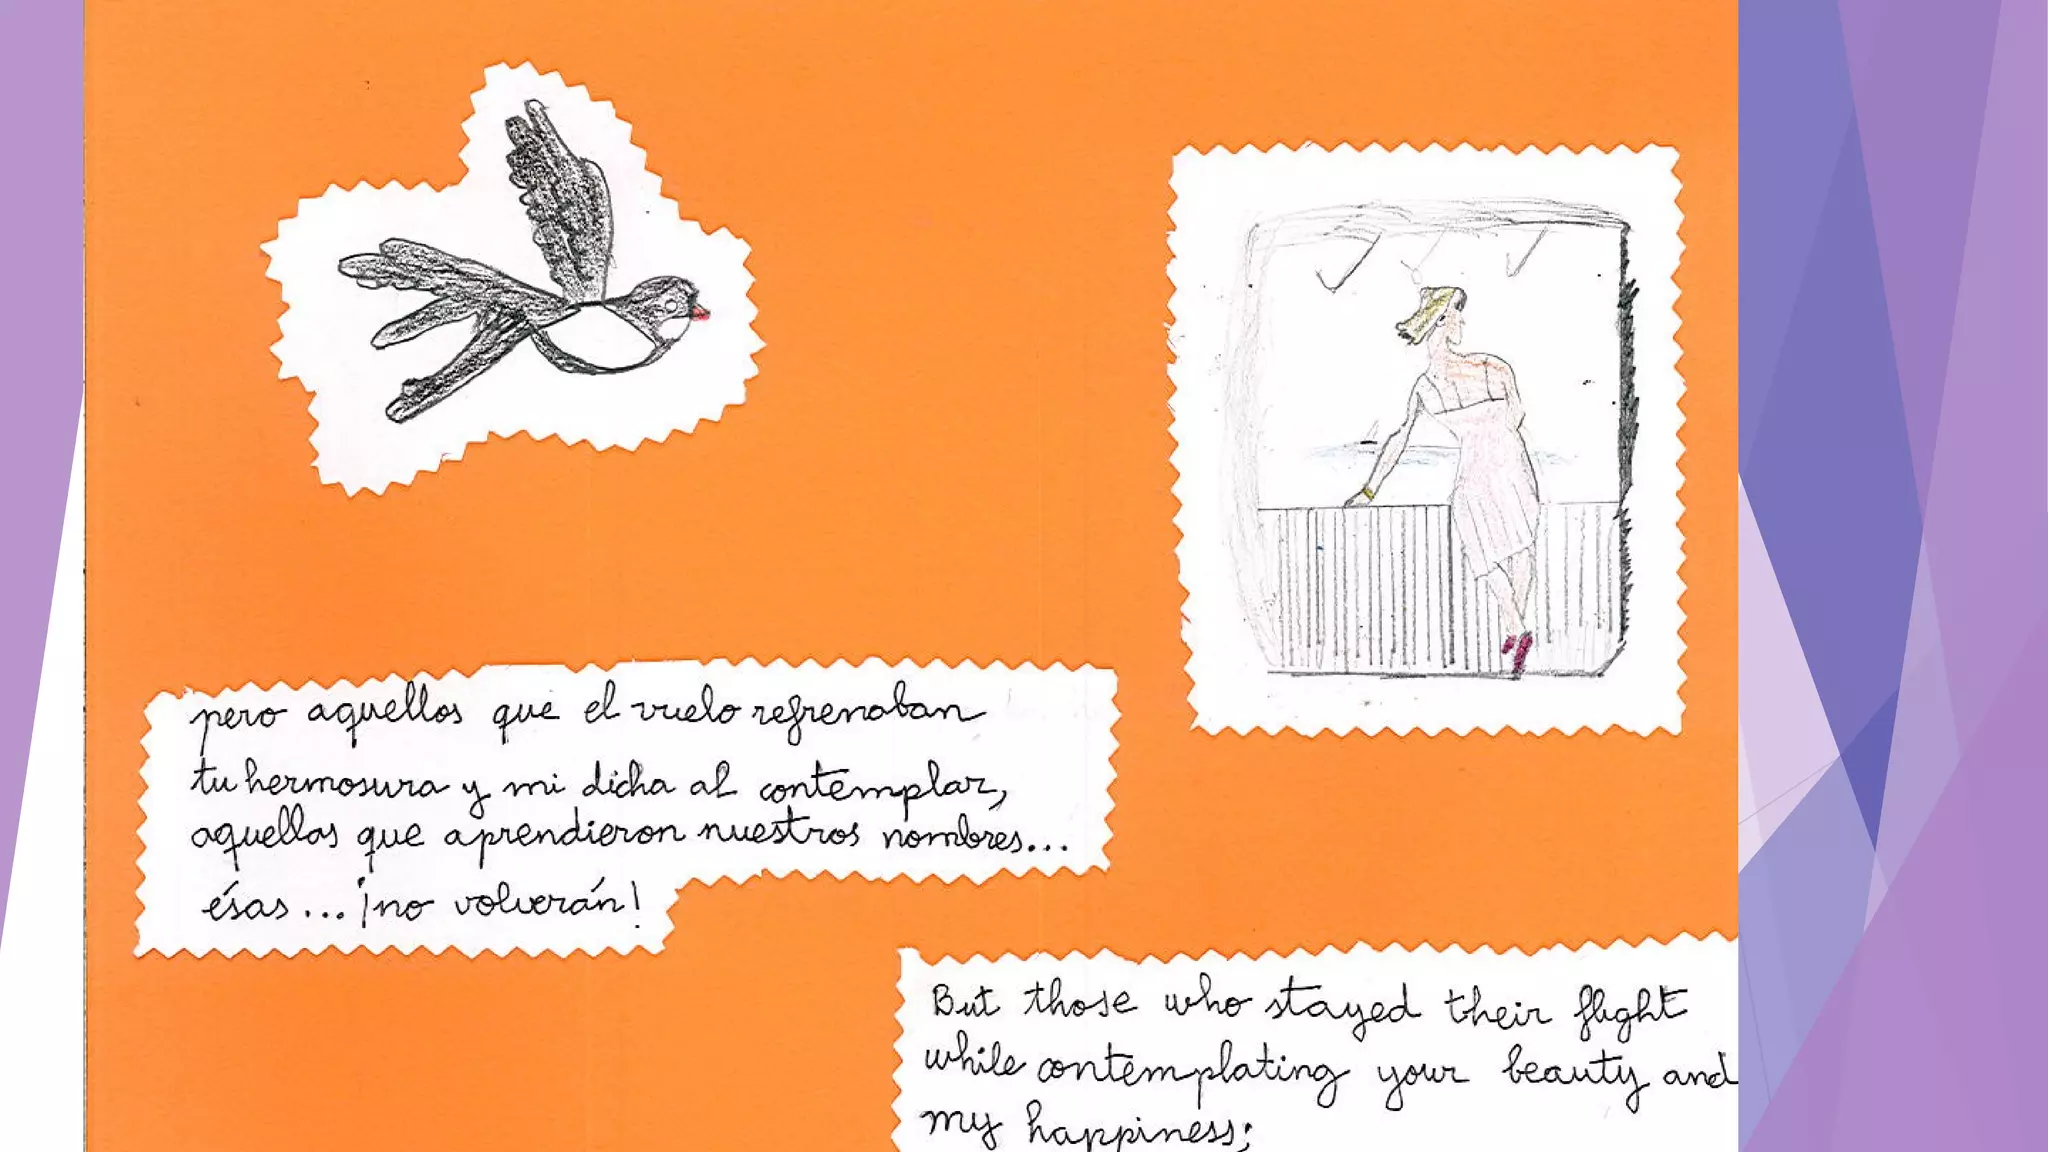 pero aquellos que el vuelo refrenaban
tu hermosura y mi dicha al contemplar,
aquellas que aprendieron nuestros nombres...
ésas... ¡no volverán!
But those who stayed their flight
while contemplating your beauty and
my happiness;